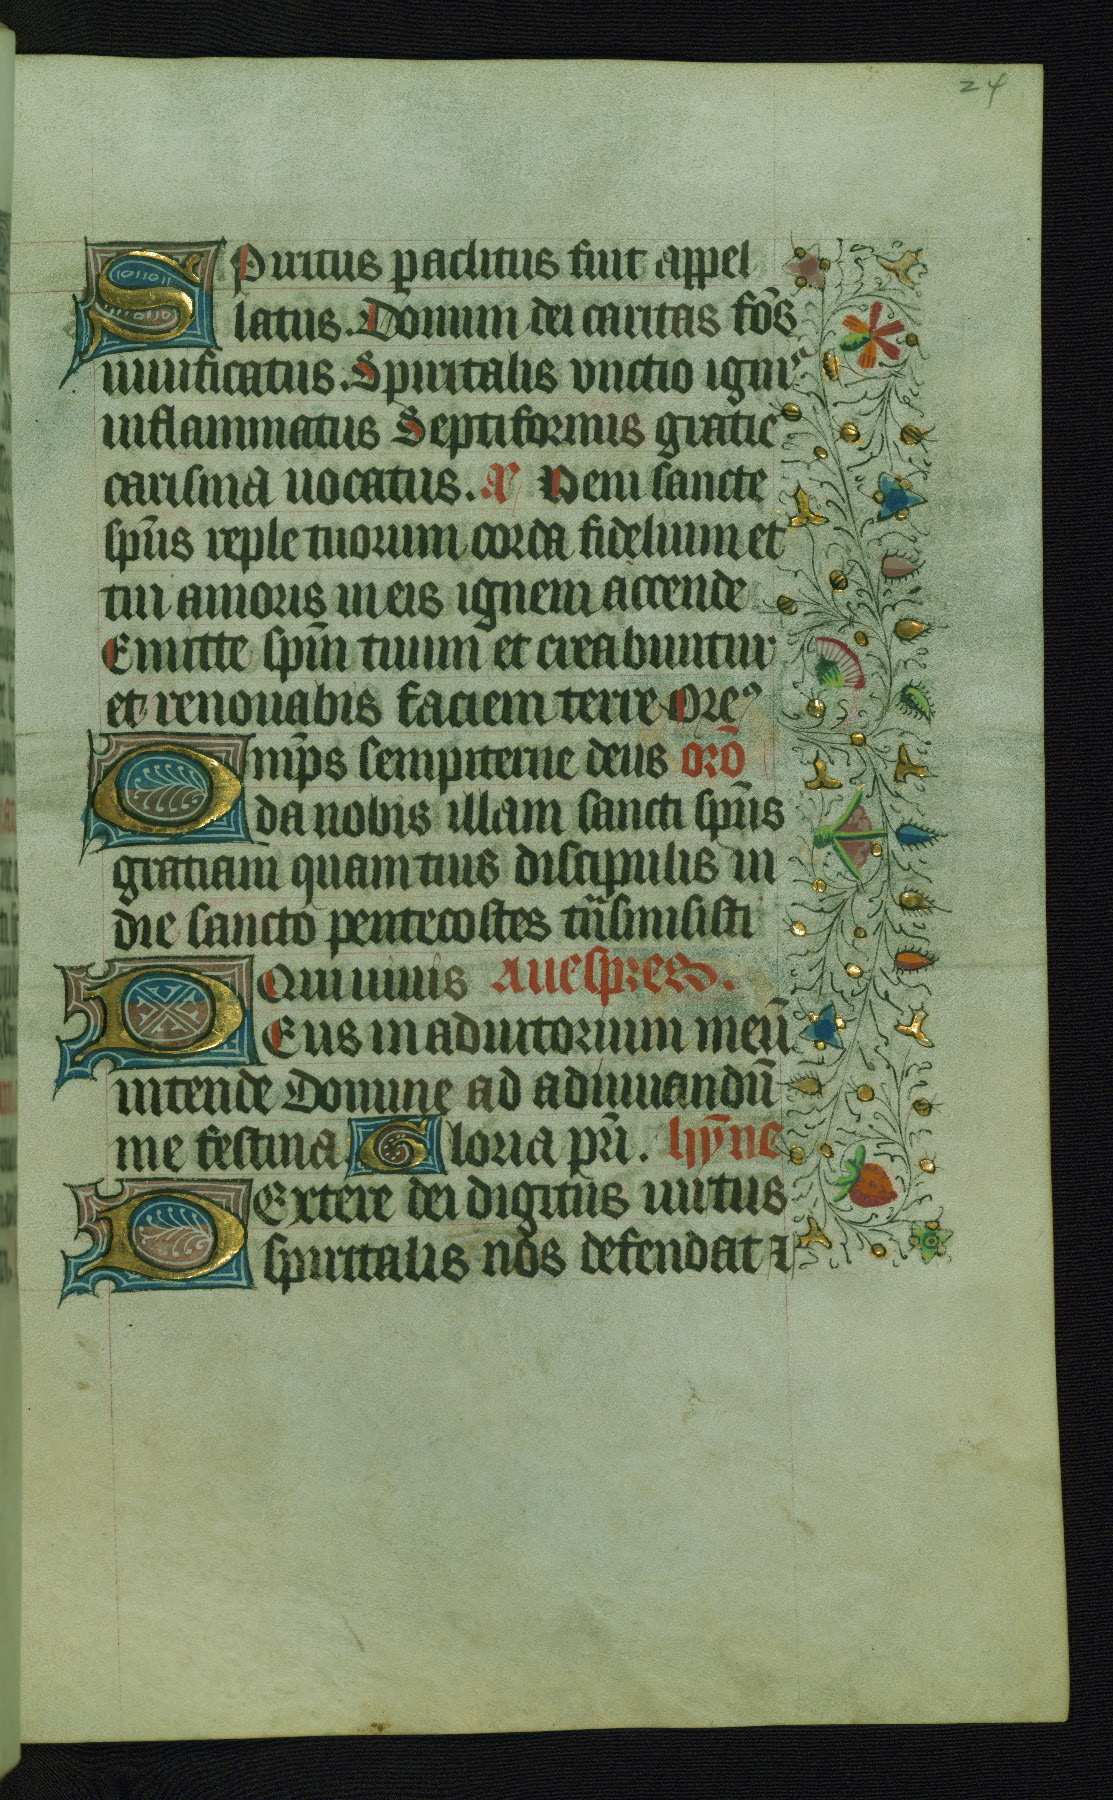 24
Spiritus paclitus fuit appel
latus. Donum dei caritas fōs
uiuificatus. Spiritalis vnctio igni
inflammatus Septiformis gratie
carismā uocatus. Ā Veni sancte
sp̄us reple tuorum corda fidelium et
tui amoris in eis ignem accende
Emitte sp̄m tuum et creabuntur
et renouabis faciem terre Oreꝰ
Omp̄s sempiterne deus orō
da nobis illam sancti sp̄us
gratiam quam tuis discipulis in
die sancto pentecostes tr̄smisisti
Qui uiuis Auespres.
Deus in adiutorium meū
intende Domine ad adiuuandū
me festina Gloria pr̄i. hȳne
Dextere dei digitus uirtus
spiritalis nos defendat ⁊